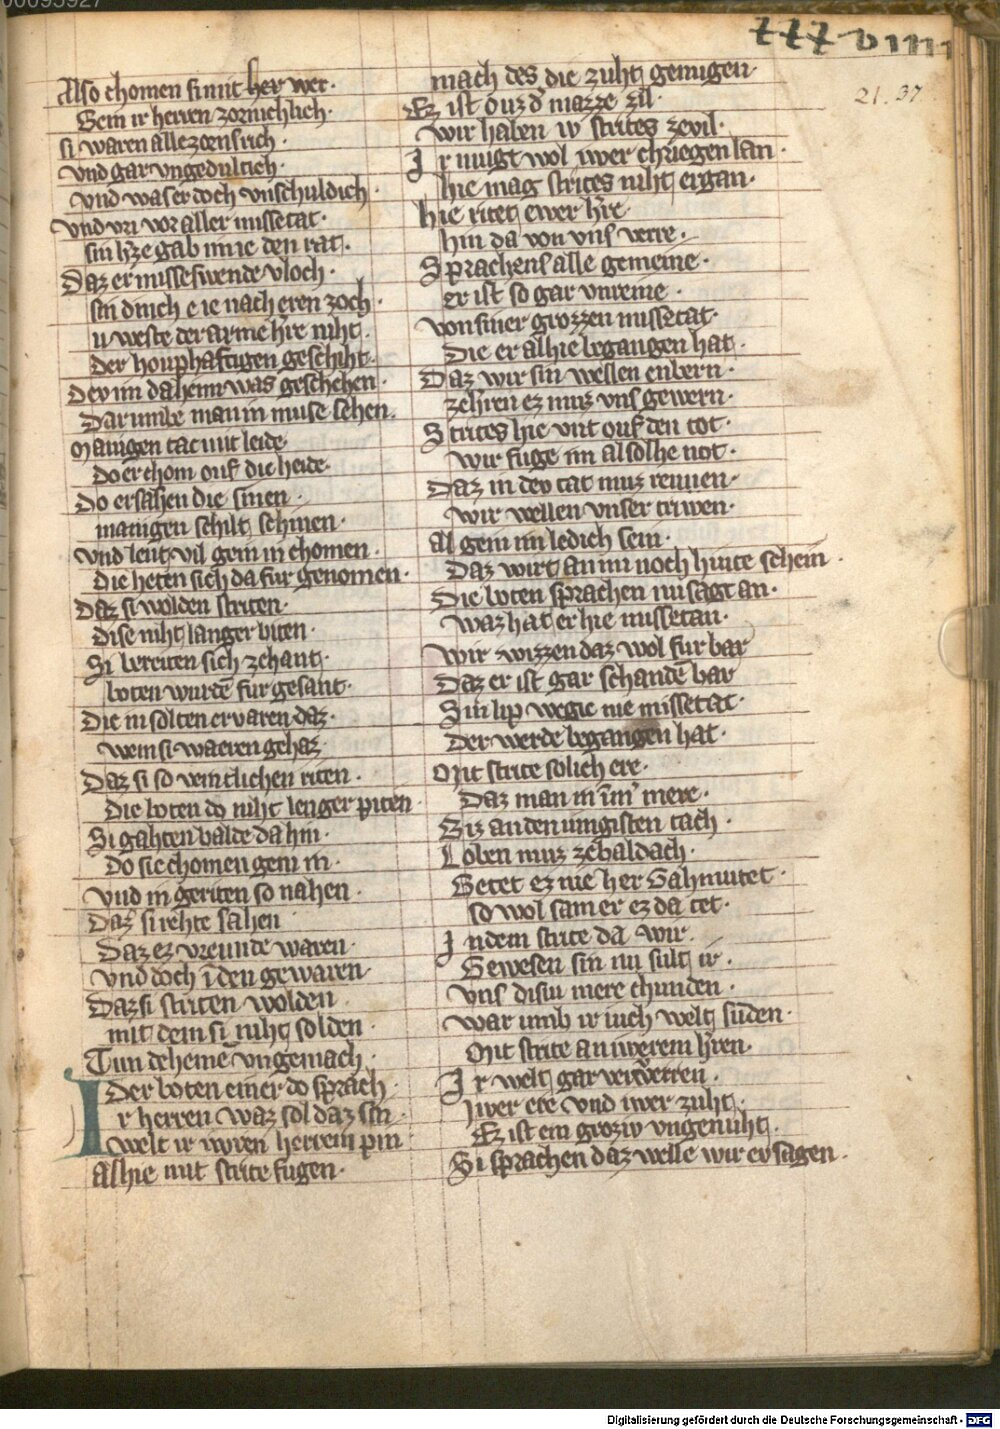 00095927
xxxviiii
21. 37
Also chomen si mit her wer.
Gein ir herren zornichlich.
si waren alle zornsrich.
vnd gar vngedultich.
vnd was er doch vnschuldich.
vnd vri vor aller missetat.
sin h̄ze gab im ie den rat.
Daz er missewende vloch.
sin dinch e ie nach eren zoch.
n weste der arme h̄re niht.
Der houphaftigen geschiht.
Dev im da heim was geschehen.
Dar vmbe man in muse sehen.
Manigen tac mit leide.
do er chom ouf die heide.
Do ersahen die sinen.
manigen schilt schinen.
vnd leut vil gein in chomen.
die heten sich da fur genomen.
Daz si wolden striten.
dise niht langer biten.
Si bereiten sich zehant.
boten wurdē fur gesant.
Die in solten ervaren daz.
wem si waeren gehaz.
Daz si so veintlichen riten.
Die boten do niht lenger piten.
Si gahten balde da hin.
Do sie chomen gein in.
vnd in geriten so nahen.
Daz si rehte sahen
Daz ez vreunde waren.
vnd doch ī den gewaren
Daz si striten wolden
mit dem si niht solden.
Tun deheinē vngemach.
Der boten einer do sprach.
Ir herren waz sol daz sin.
welt ir vwren herren pin
Alhie mit strite fugen.
mach des die zuht genugen.
Ez ist ouz d̄ mazze zil.
wir haben iv strites zevil.
Ir mugt wol iwer chriegen lan.
hie mag strites niht ergan.
hie ritet ewer h̄re.
hin da von vns verre.
Sprachens alle gemeine.
er ist so gar vnreine.
von siner grozzen missetat.
Die er alhie begangen hat.
Daz wir sin wellen enbern.
zeh̄ren ez muz vns gewern.
Strites hie vnt ouf den tot.
wir fuge im alsolhe not.
Daz in dev tat muz rewen.
wir wellen vnser triwen.
Al gein im ledich sein.
Daz wirt an im noch hinte schein.
Die boten sprachen nu sagt an.
waz hat er hie missetan.
wir wizzen daz wol fur bar
Daz er ist gar schandē bar
Sin lip wegie nie missetat.
Der werde begangen hat.
Mit strite solich ere.
Daz man in īm̄ mere.
Biz an den iungisten tach.
Loben muz zebaldach.
Getet ez nie her Gahmuret.
so wol sam er ez da tet.
In dem strite da wir.
Gewesen sin nu sult ir.
vns disiu mere chunden.
war umb ir iuch welt sunden.
Mit strite an iwerem h̄ren.
Ir welt gar ververren.
iwer ere vnd iwer zuht.
Ez ist ein groziv vngenuht.
Si sprachen daz welle wir ev sagen.
Digitalisierung gefördert durch die Deutsche Forschungsgemeinschaft - DFG